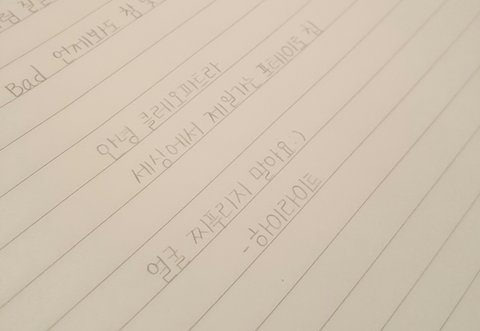 Bad 언제봐도 참
안녕 클레오파트라
세상에서 제일가는 포테이토 칩
얼굴 찌푸리지 말아요 :)
- 하이라이트